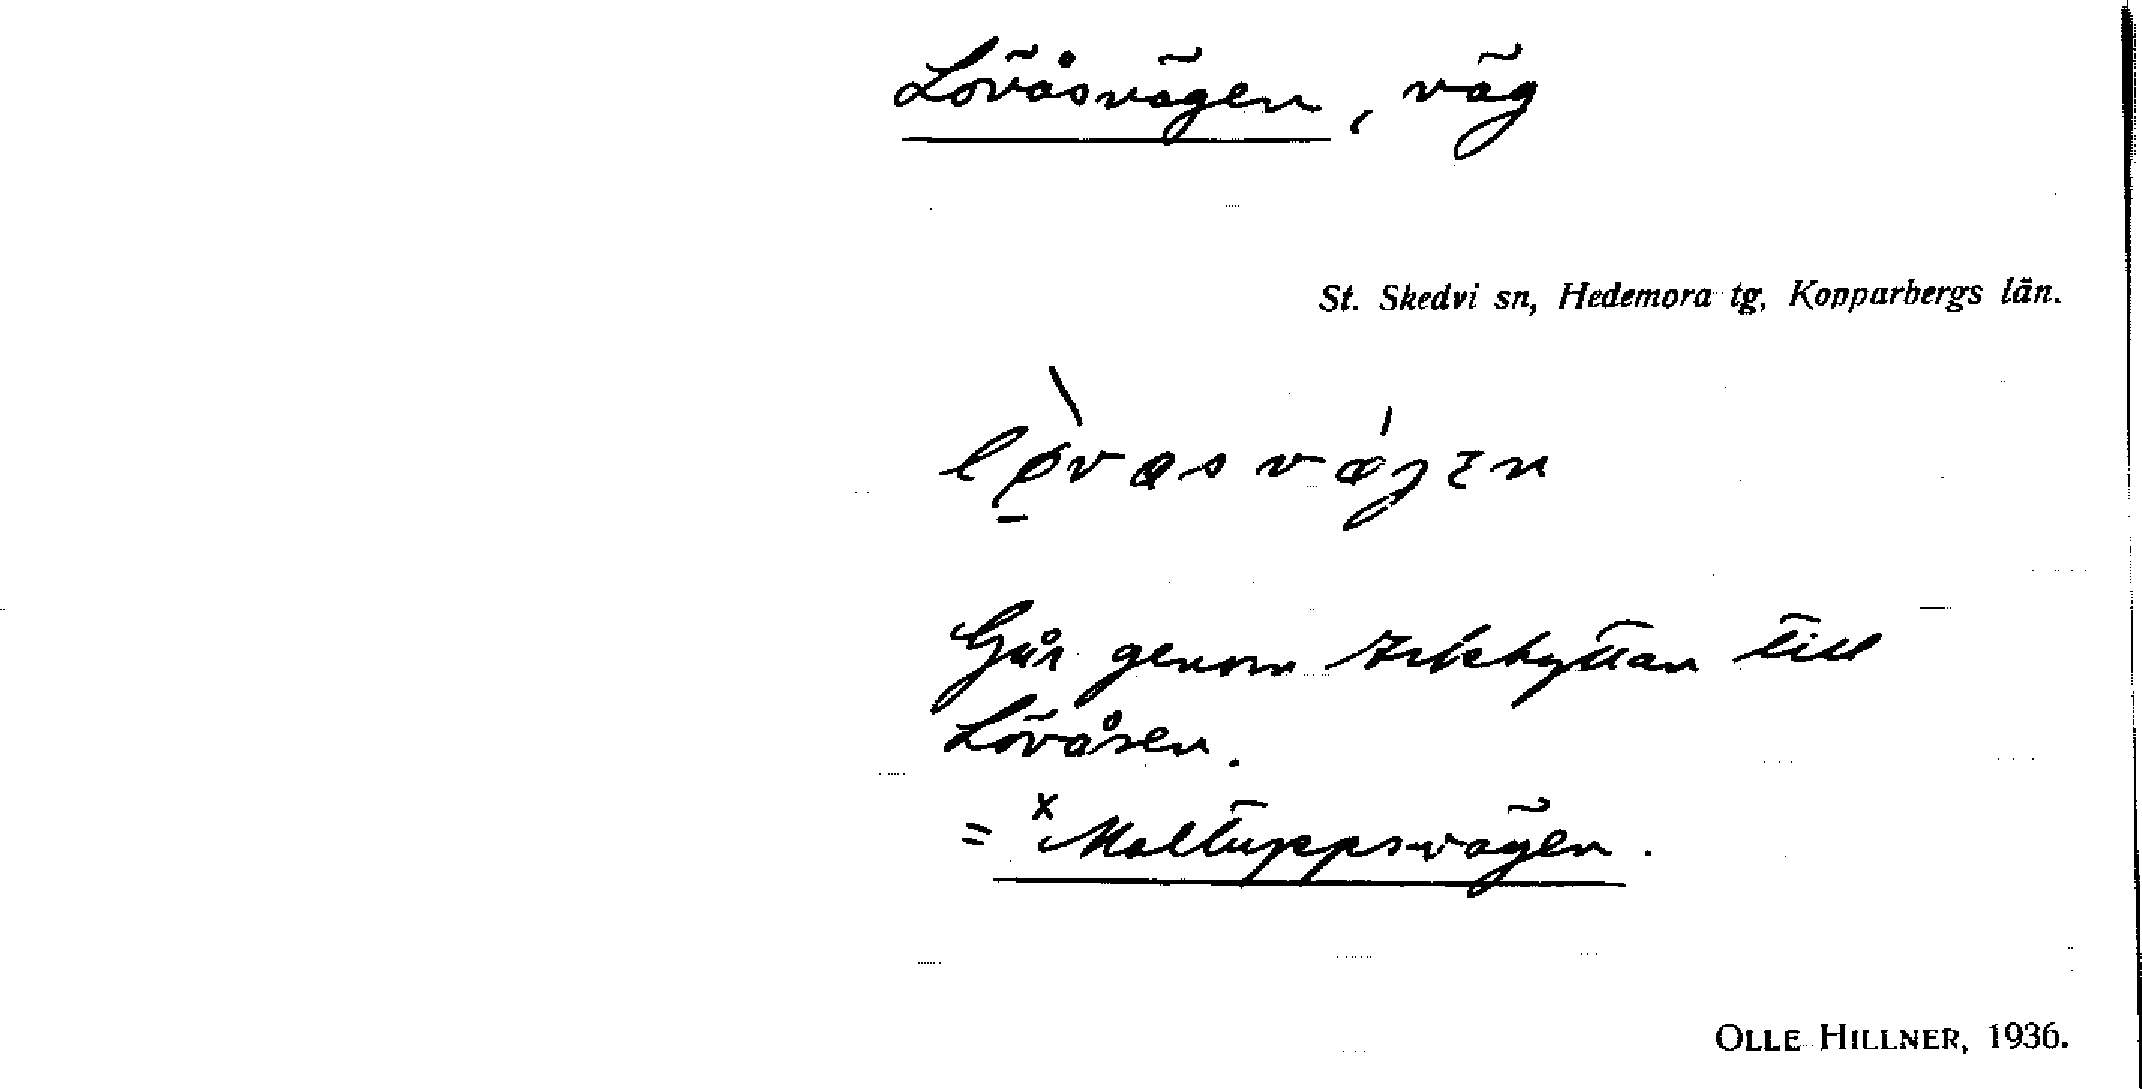 Lövåsvägen, väg
St. Skedvi sn, Hedemora tg, Kopparbergs län.
Går genom Arkhyttan till
Lövåsen.
= x Maltuppsvägen.
OLLE HILLNER, 1936.